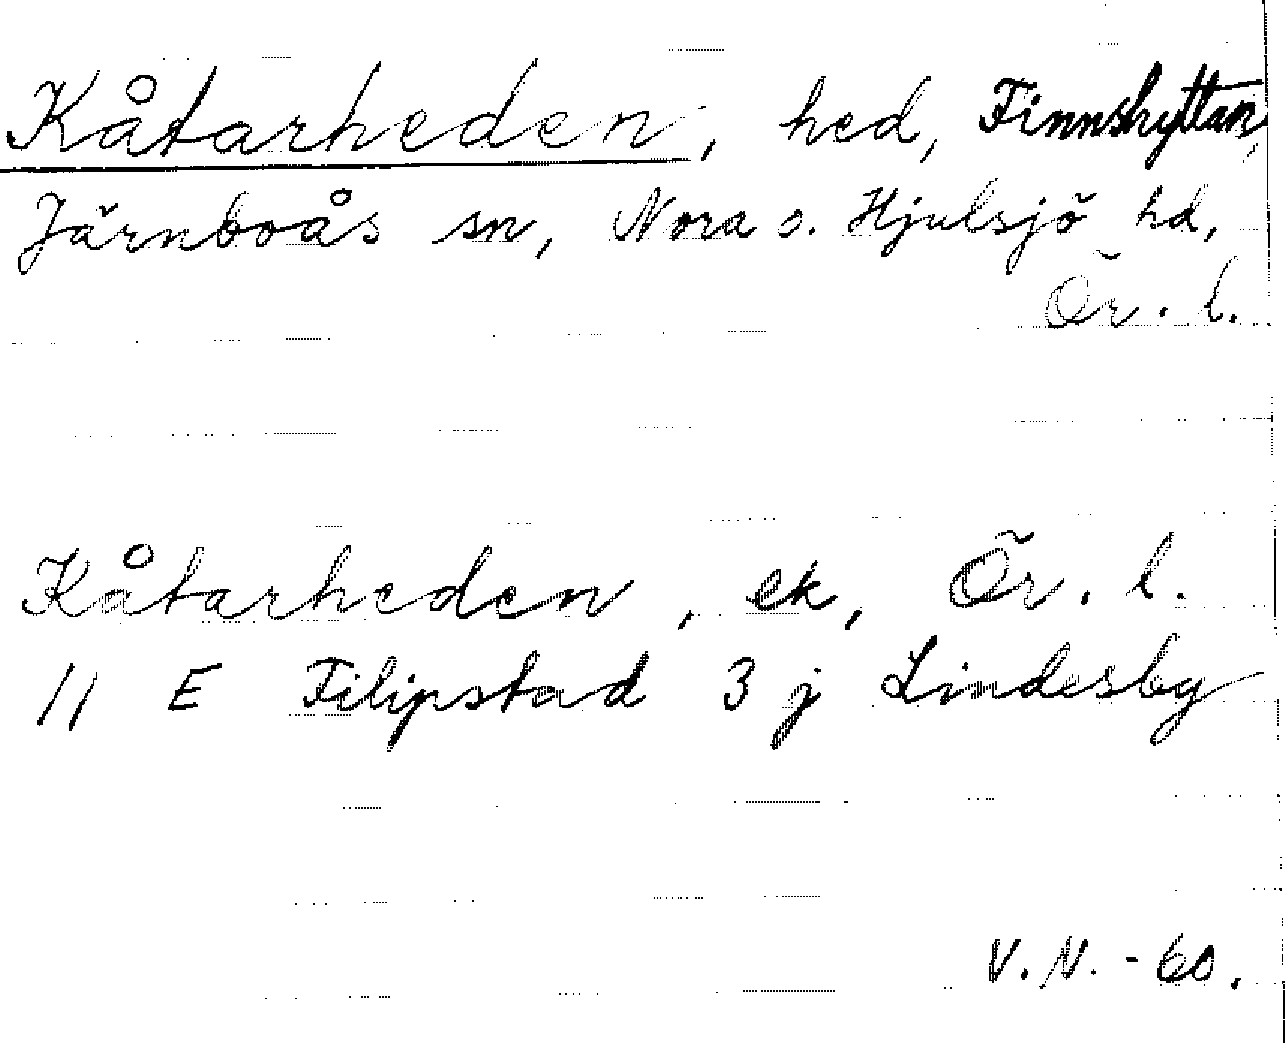 Kåtarheden, hed, Finnshyttan,
Järnboås sn, Nora o. Hjulsjö hd,
Ör. l.
Kåtarheden, ek, Ör. l.
11 E Filipstad 3 j Lindesby
V.N. - 60.